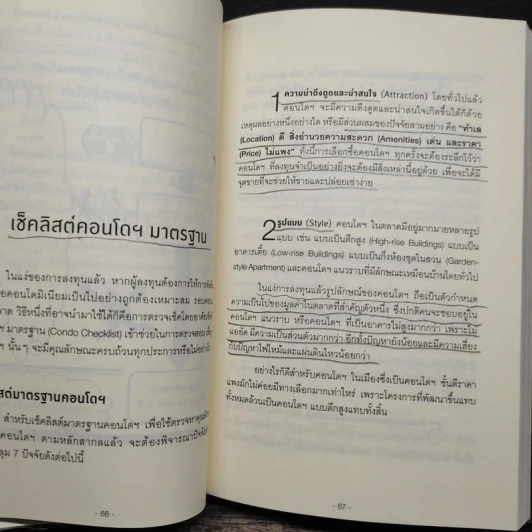 เช็คลิสต์คอนโดฯ มาตรฐาน
ในแง่ของการลงทุนแล้ว หากผู้ลงทุนต้องการให้การ
คอนโดมิเนียมเป็นไปอย่างถูกต้องเหมาะสม รอบคอบ
วิธีหนึ่งที่อาจนำมาใช้ได้ก็คือการตรวจเช็คโดยอาศัย
มาตรฐาน (Condo Checklist) เข้าช่วยในการตรวจสอบ
นั้นๆ จะมีคุณลักษณะครบถ้วนทุกประการหรือไม่
สต์มาตรฐานคอนโดฯ
สำหรับเช็คลิสต์มาตรฐานคอนโดฯ เพื่อใช้ตรวจหา
คอนโดฯ ตามหลักสากลแล้ว จะต้องพิจารณา
7 ปัจจัยดังต่อไปนี้
- 66 -
1 ความน่าดึงดูดและน่าสนใจ (Attraction) โดยทั่วไปแล้ว
คอนโดฯ จะมีความดึงดูดและน่าสนใจเกิดขึ้นได้ก็ด้วย
เหตุผลอย่างหนึ่งอย่างใด หรือมีส่วนผสมของปัจจัยสามอย่าง คือ "ทำเล
(Location) ดี สิ่งอำนวยความสะดวก (Amenities) เด่น และราคา
(Price) ไม่แพง" ทั้งนี้การเลือกซื้อคอนโดฯ ทุกครั้งจะต้องระลึกไว้ว่า
คอนโดฯ ที่ลงทุนจำเป็นอย่างยิ่งจะต้องมีสิ่งเหล่านี้อยู่ด้วย เพื่อจะได้มี
จุดขายที่จะช่วยให้ขายและปล่อยเช่าง่าย
2 รูปแบบ (Style) คอนโดฯ ในตลาดมีอยู่มากมายหลายรูป
แบบ เช่น แบบเป็นตึกสูง (High-rise Buildings) แบบเป็น
อาคารเตี้ย (Low-rise Buildings) แบบเป็นกึ่งห้องชุดในสวน (Garden-
style Apartment) และคอนโดฯ แนวราบที่มีลักษณะเหมือนบ้านโดยทั่วไป
ในแง่การลงทุนแล้วรูปลักษณ์ของคอนโดฯ ถือเป็นตัวกำหนด
ความเป็นไปของมูลค่าในตลาดที่สำคัญตัวหนึ่ง ซึ่งปกติคนจะชอบอยู่ใน
คอนโดฯ แนวราบ หรือคอนโดฯ ที่เป็นอาคารไม่สูงมากกว่า เพราะไม่
แออัด มีความเป็นส่วนตัวมากกว่า อีกทั้งปัญหายังน้อยและมีความเสี่ยง
กับปัญหาไฟไหม้และแผ่นดินไหวน้อยกว่า
อย่างไรก็ดีสำหรับคอนโดฯ ในเมืองซึ่งเป็นคอนโดฯ ชั้นดีราคา
แพงมักไม่ค่อยมีทางเลือกมากเท่าไหร่ เพราะโครงการที่พัฒนาขึ้นแทบ
ทั้งหมดล้วนเป็นคอนโดฯ แบบตึกสูงแทบทั้งสิ้น
- 67 -